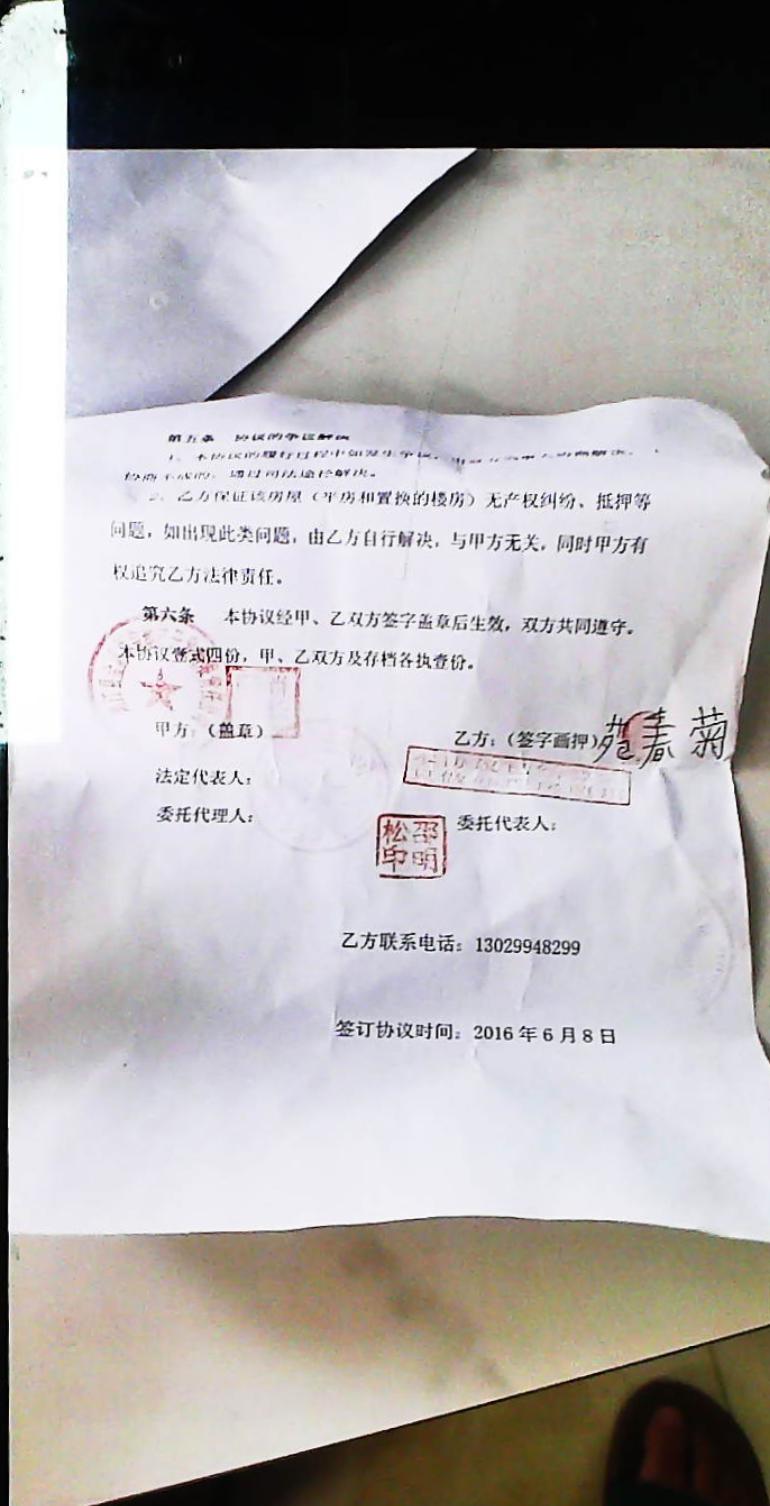 第五条 协议的争议解决
1、本协议的履行过程中如发生争议,
协商不成的,通过司法途径解决。
2、乙方保证该房屋(平房和置换的楼房)无产权纠纷、抵押等
问题,如出现此类问题,由乙方自行解决,与甲方无关,同时甲方有
权追究乙方法律责任。
第六条 本协议经甲、乙双方签字盖章后生效,双方共同遵守。
本协议壹式四份,甲、乙双方及存档各执壹份。
甲方:(盖章)
乙方:(签字画押)苑春菊
法定代表人:
委托代理人:
委托代表人:
邵明松印
乙方联系电话:13029948299
签订协议时间:2016年6月8日